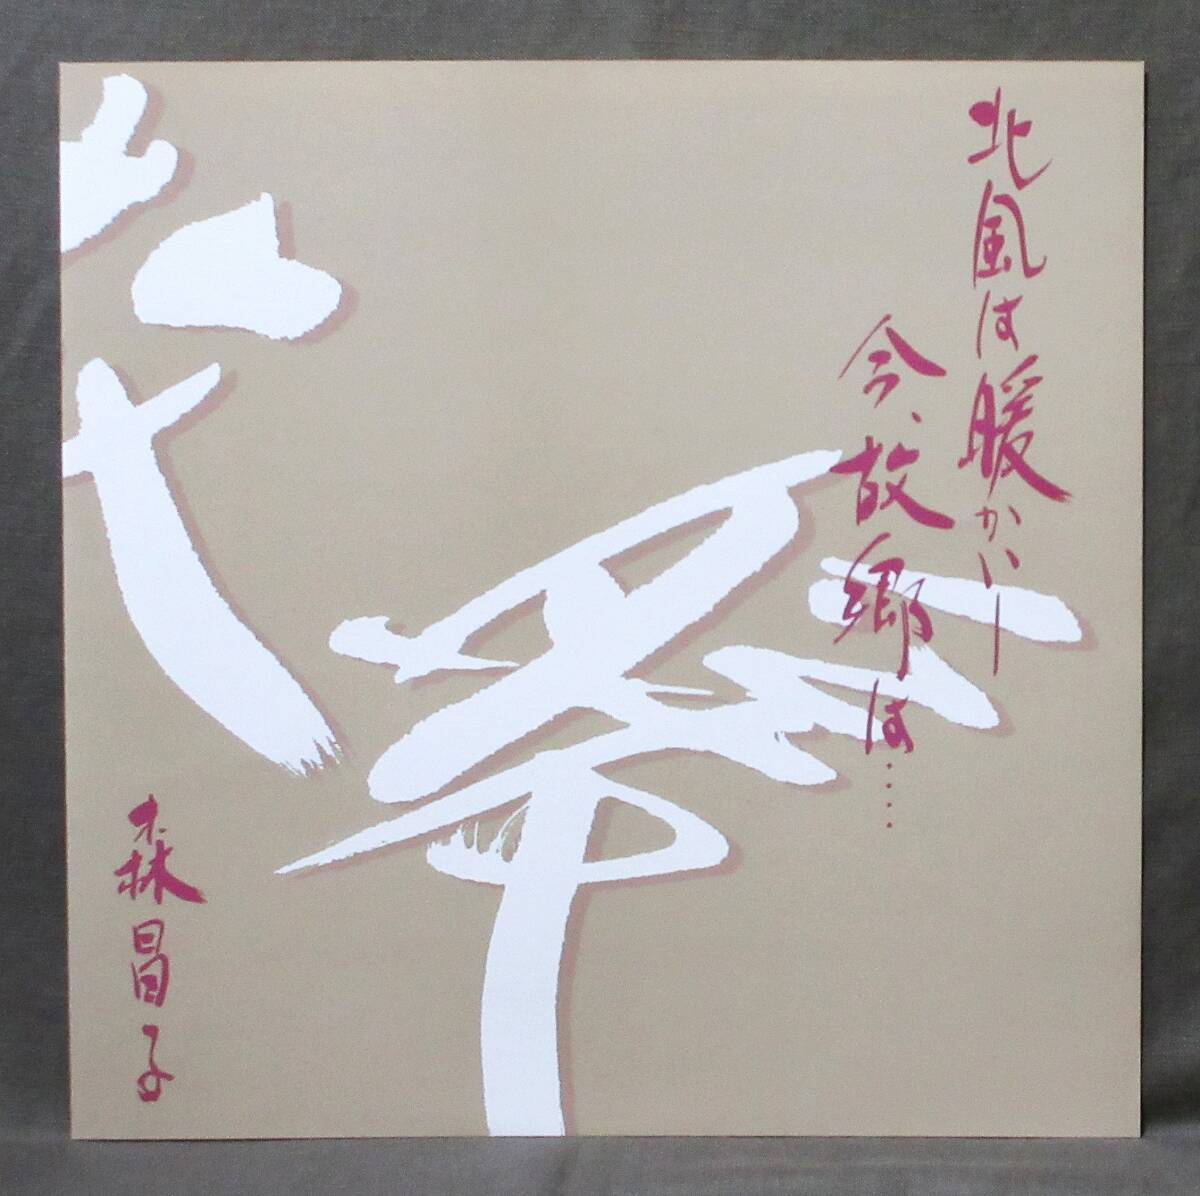 北風は暖かい―
今、故郷は……
森昌子